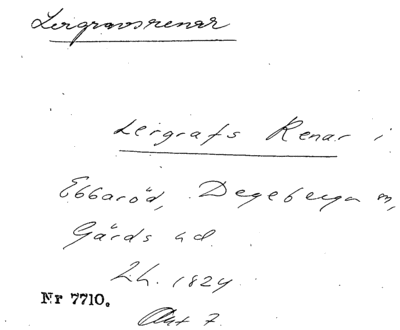 Lergravsrenar
Lergrafs Renar i
Ebbaröd, Degeberga sn,
Gärds hd.
Lh. 1824
Nr 7710.
Akt 7